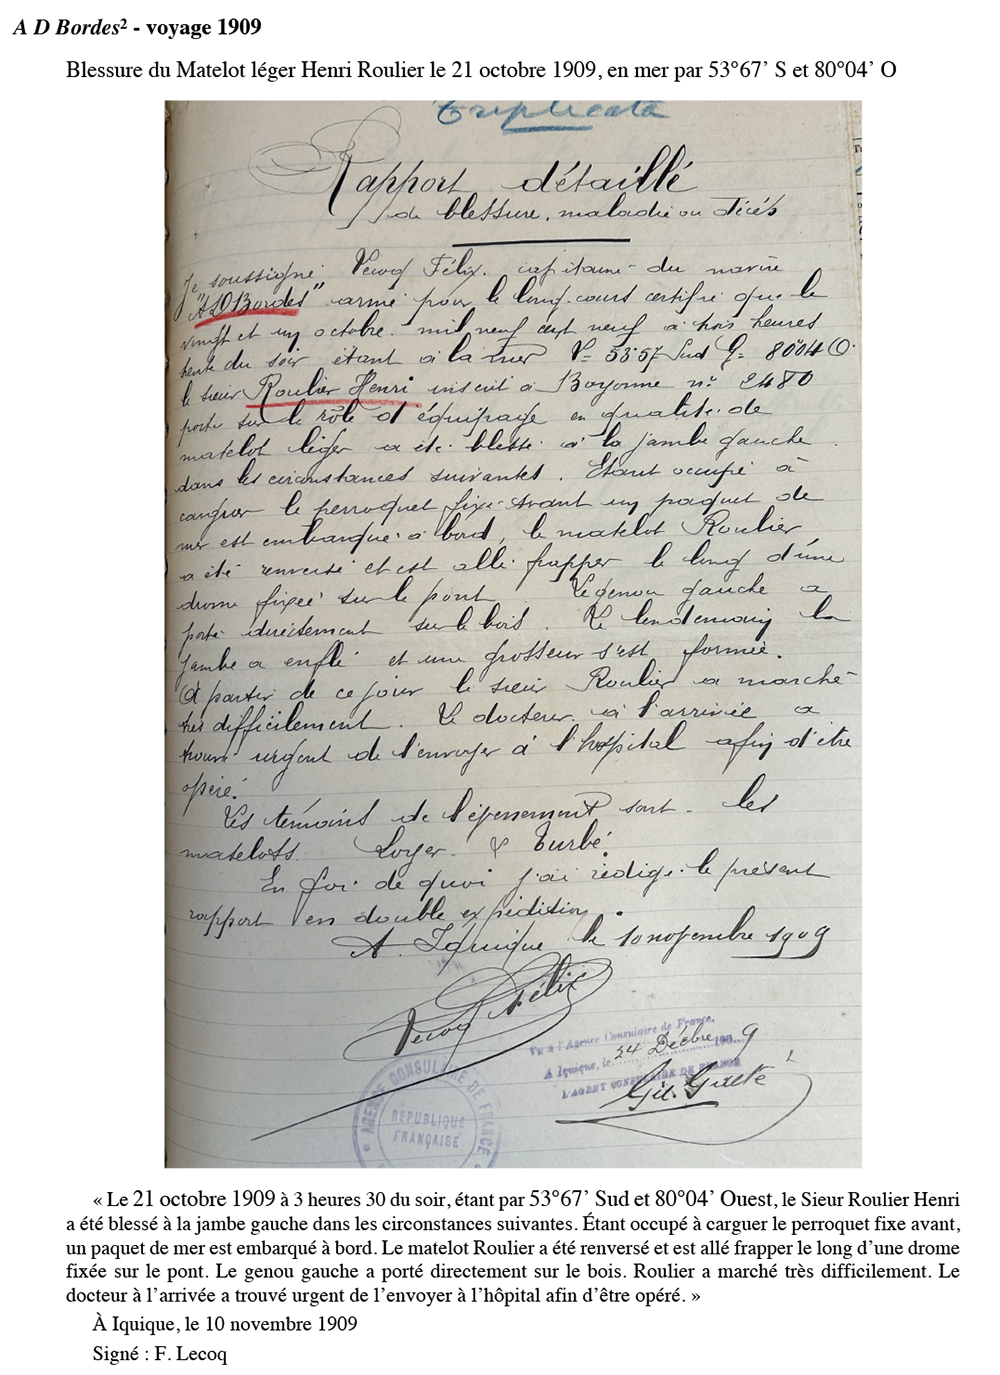 A D Bordes² - voyage 1909
Blessure du Matelot léger Henri Roulier le 21 octobre 1909, en mer par 53°67’ S et 80°04’ O
Triplicata
Rapport détaillé
de blessure, maladie ou décès
Je soussigné Lecoq Félix capitaine du navire
"A D Bordes" armé pour le long-cours certifie que le
vingt et un octobre mil neuf cent neuf à trois heures
trente du soir étant à la mer L= 53°57 Sud G= 80°04 O
le sieur Roulier Henri inscrit à Bayonne n° 2480
porté sur le rôle d'équipage en qualité de
matelot léger a été blessé à la jambe gauche
dans les circonstances suivantes. Etant occupé à
carguer le perroquet fixe avant un paquet de
mer est embarqué à bord, le matelot Roulier
a été renversé et est allé frapper le long d'une
drome fixée sur le pont. Le genou gauche a
porté directement sur le bois. Le lendemain la
jambe a enflé et une grosseur s'est formée.
A partir de ce jour le sieur Roulier a marché
très difficilement. Le docteur à l'arrivée a
trouvé urgent de l'envoyer à l'hôpital afin d'être
opéré.
Les témoins de l'évènement sont les
matelots Loyer & Turbé
En foi de quoi j'ai rédigé le présent
rapport en double expédition.
A Iquique le 10 novembre 1909
Lecoq Félix
Vu à l'Agence Consulaire de France,
A Iquique, le 24 Décbre 1909
L'AGENT CONSULAIRE DE FRANCE
AGENCE CONSULAIRE DE FRANCE
RÉPUBLIQUE
FRANÇAISE
« Le 21 octobre 1909 à 3 heures 30 du soir, étant par 53°67’ Sud et 80°04’ Ouest, le Sieur Roulier Henri
a été blessé à la jambe gauche dans les circonstances suivantes. Étant occupé à carguer le perroquet fixe avant,
un paquet de mer est embarqué à bord. Le matelot Roulier a été renversé et est allé frapper le long d’une drome
fixée sur le pont. Le genou gauche a porté directement sur le bois. Roulier a marché très difficilement. Le
docteur à l’arrivée a trouvé urgent de l’envoyer à l’hôpital afin d’être opéré. »
À Iquique, le 10 novembre 1909
Signé : F. Lecoq